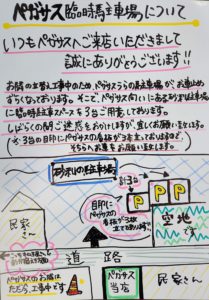 ペガサス臨時駐車場について
いつもペガサスへご来店いただきまして
誠にありがとうございます!!
お店の土替え工事中のため、ペガサスうらの駐車場が、お車止め
ずらくなっております。そこで、ペガサス向いにある砂利駐車場
に臨時駐車スペースを3台ご用意しております。
しばらくの間ご迷惑をおかけしますが、宜しくお願い致します。
※3台の目印にペガサスの看板が3本立っておりますので
そちらへお車をお願い致します。
砂利の駐車場
計3台
P
P
P
目印に
ペガサスの
看板が3枚
立てております
民家
さん
空地
です
道路
ペガサスのお隣は
ただ今、工事中です
ペガサス
当店
民家さん